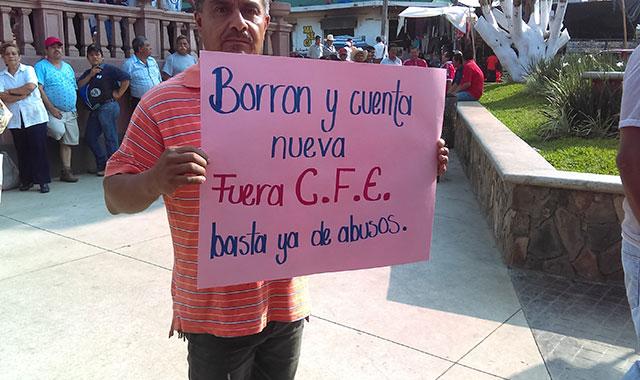 Borron y cuenta
nueva
Fuera C.F.E.
basta ya de abusos.